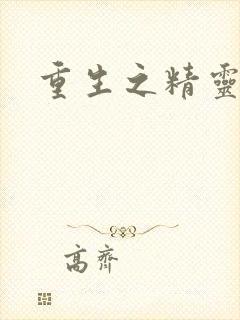 重生之精靈
高齊